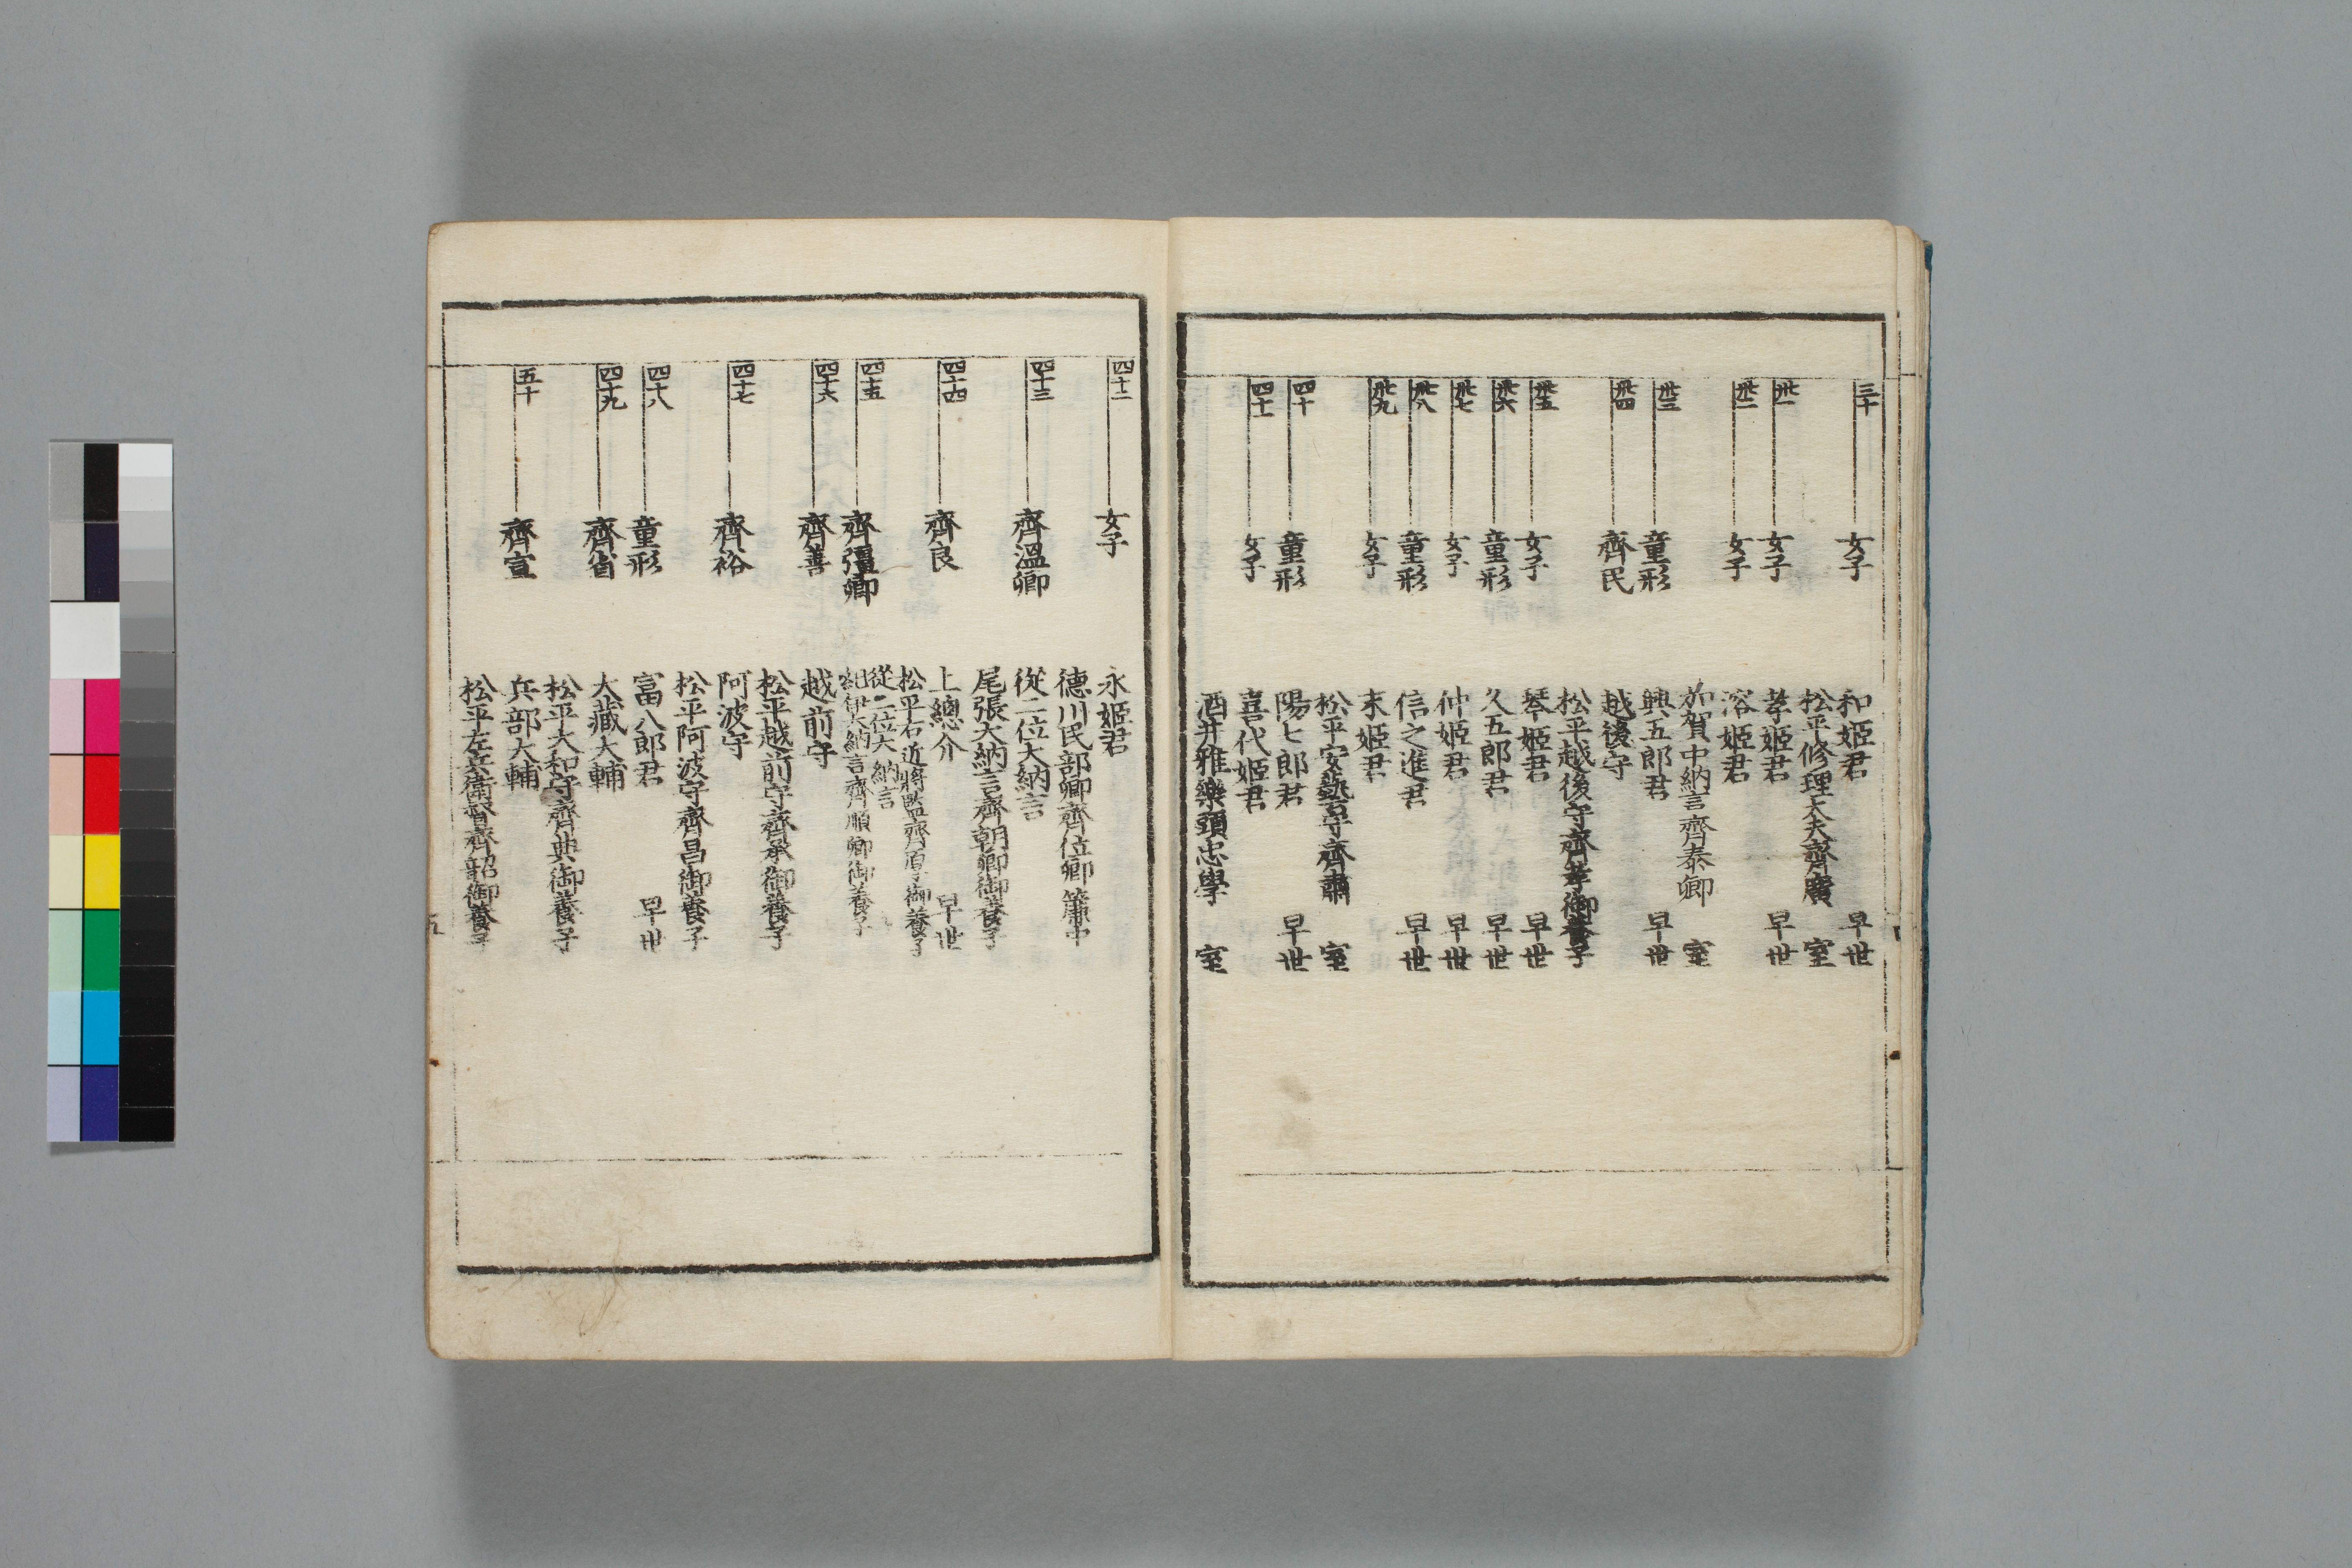 三十 女子 和姫君 早世
松平修理大夫齊廣 室
卅一 女子 孝姫君 早世
卅二 女子 溶姫君
加賀中納言齊泰卿 室
卅三 童形 興五郎君 早世
卅四 齊民 越後守
松平越後守齊孝御養子
卅五 女子 琴姫君 早世
卅六 童形 久五郎君 早世
卅七 女子 仲姫君 早世
卅八 童形 信之進君 早世
卅九 女子 末姫君
松平安藝守齊肅 室
四十 童形 陽七郎君 早世
四十一 女子 喜代姫君
酒井雅樂頭忠學 室
四十二 女子 永姫君
德川民部卿齊位卿 簾中
四十三 齊溫卿 從二位大納言
尾張大納言齊朝卿御養子
四十四 齊良 上總介 早世
松平右近將監齊厚御養子
四十五 齊彊卿 從二位大納言
紀伊大納言齊順卿御養子
四十六 齊善 越前守
松平越前守齊承御養子
四十七 齊裕 阿波守
松平阿波守齊昌御養子
四十八 童形 富八郎君 早世
四十九 齊省 大藏大輔
松平大和守齊典御養子
五十 齊宣 兵部大輔
松平左兵衛督齊韶御養子